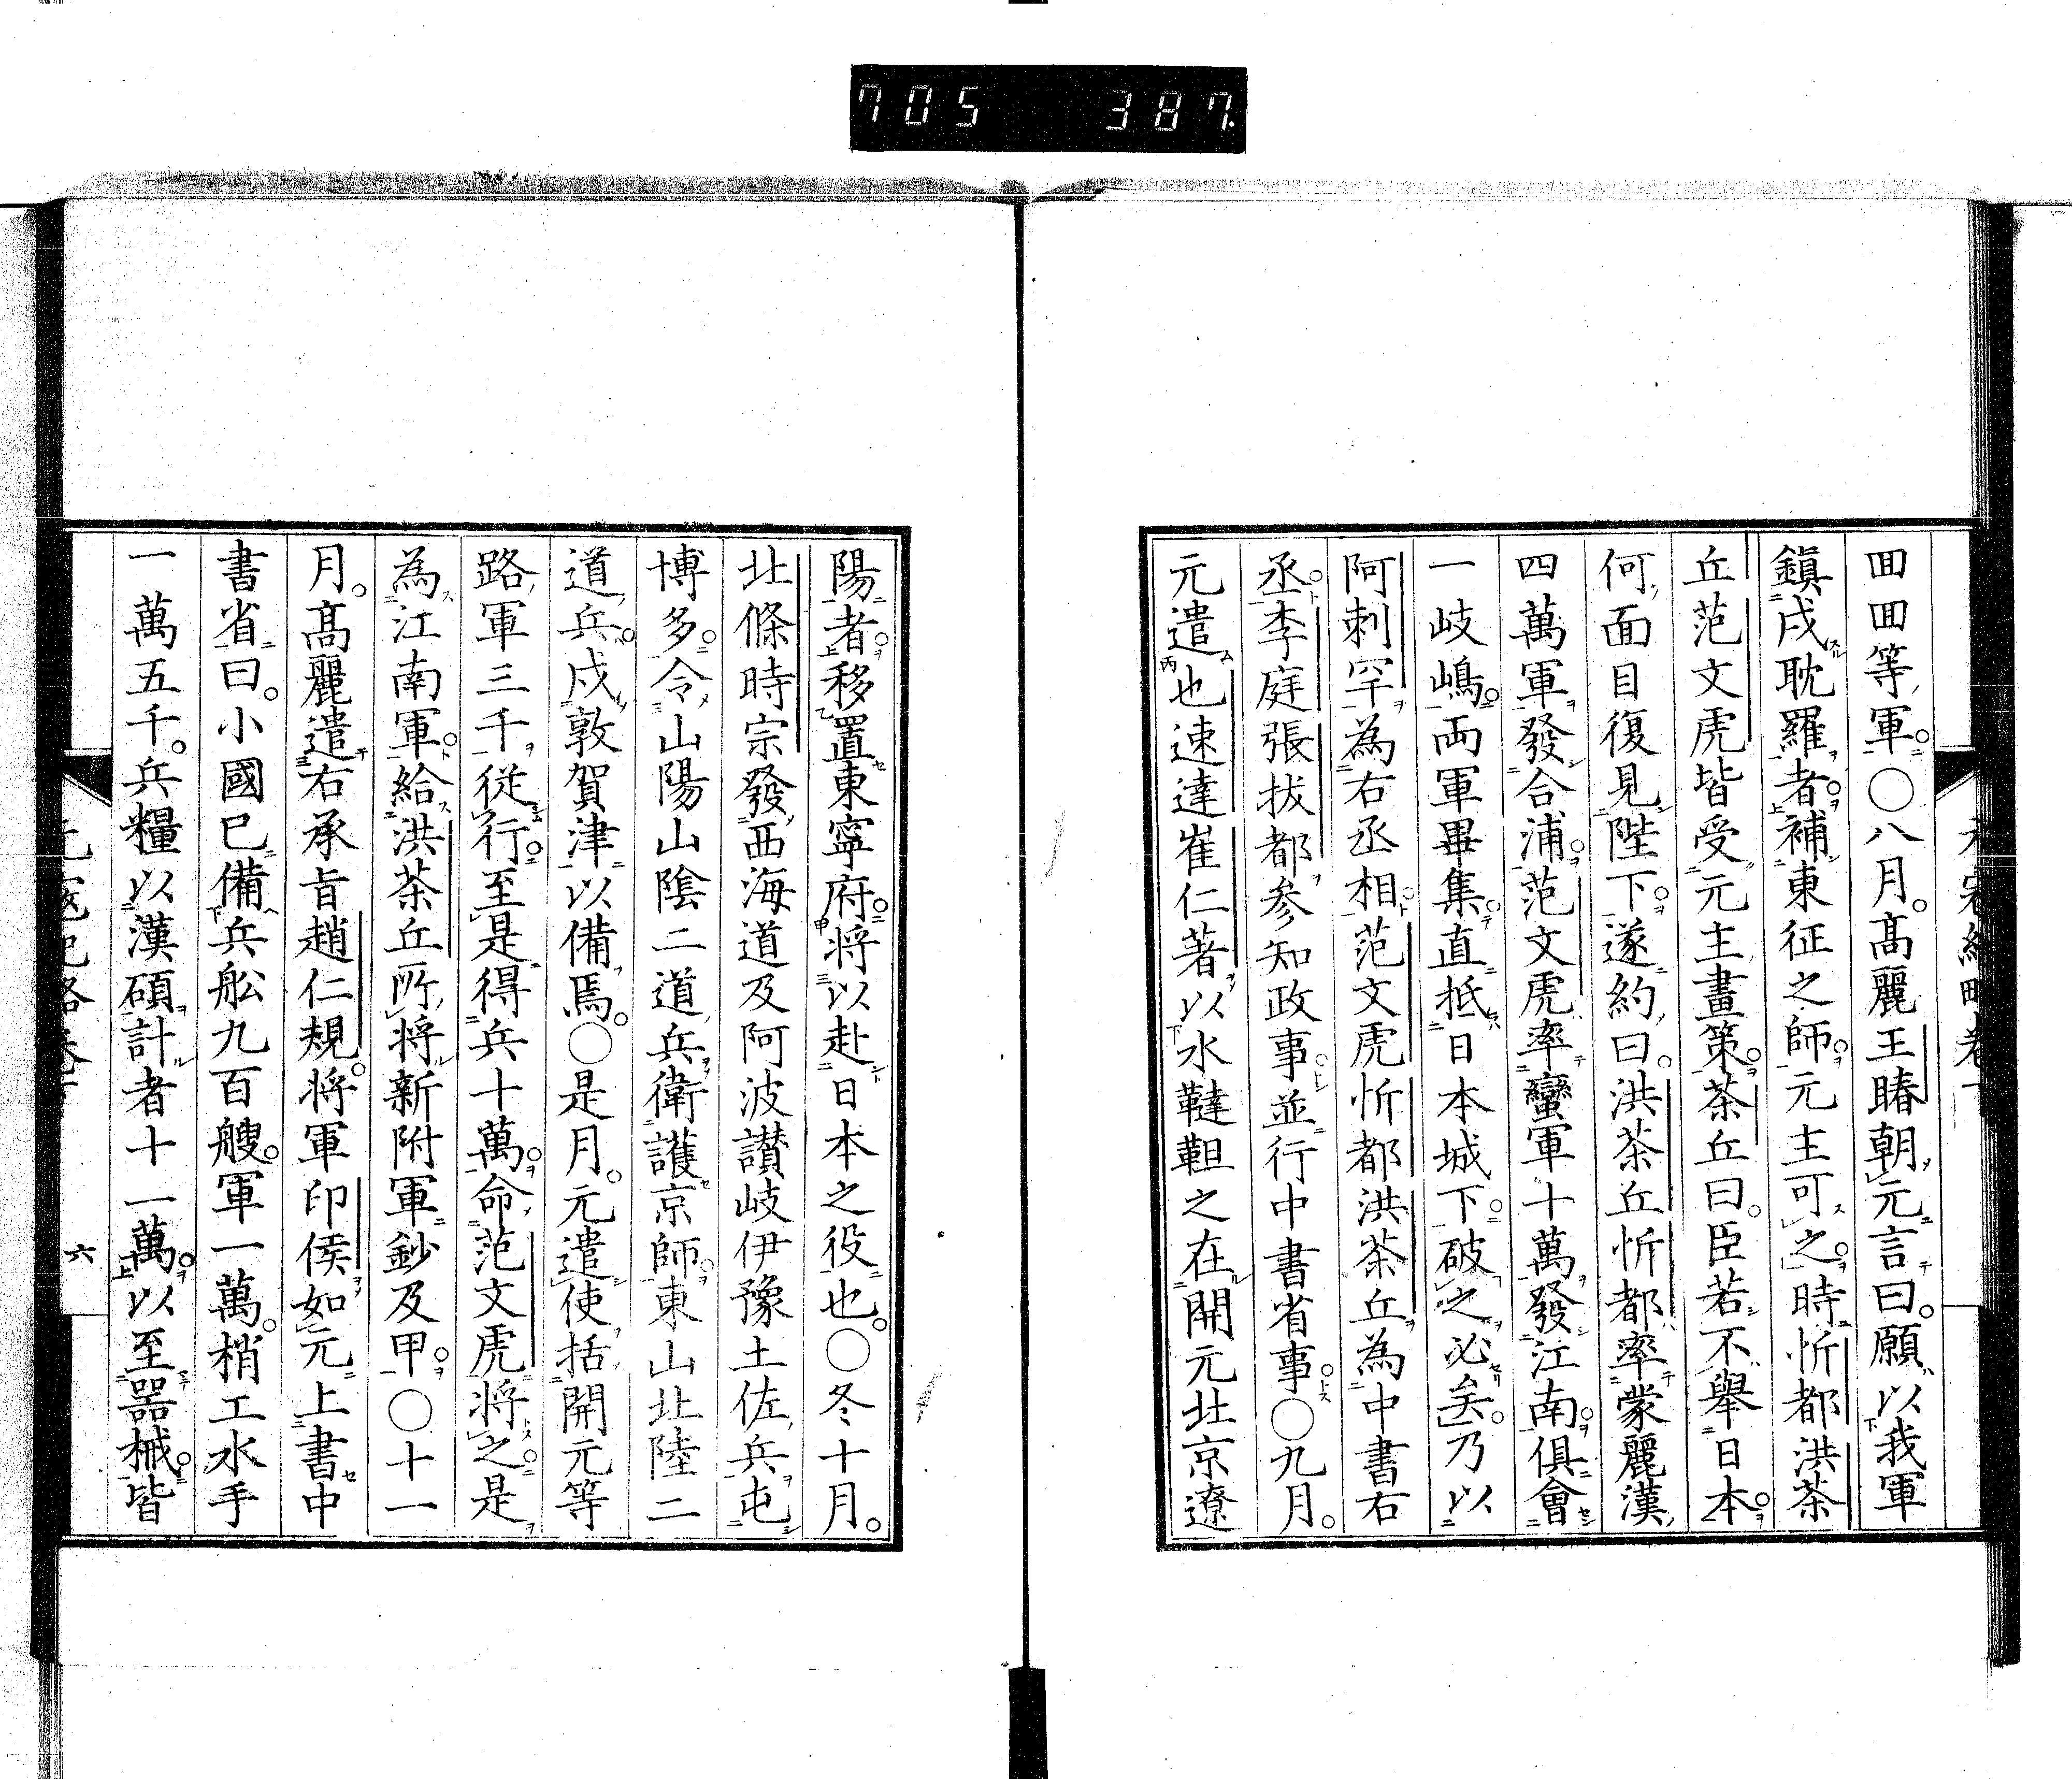 705 387
回回等軍。〇八月。高麗王賰朝元言曰。願以我軍
鎮戍耽羅者補東征之師元主可之時忻都洪茶
丘范文虎皆受元主畫策茶丘曰。臣若不舉日本
何面目復見陛下遂約曰。洪茶丘忻都率蒙麗漢
四萬軍發合浦范文虎率蠻軍十萬發江南俱會
一岐嶋兩軍畢集直抵日本城下破之必矣。乃以
阿刺罕為右丞相范文虎忻都洪茶丘為中書右
丞李庭張拔都參知政事並行中書省事〇九月。
元遣也速達崔仁著以水韃靼之在開元北京遼
陽者移置東寧府將以赴日本之役也。〇冬十月。
北條時宗發西海道及阿波讃岐伊豫土佐兵屯
博多令山陽山陰二道兵衛護京師東山北陸二
道兵戍敦賀津以備焉。〇是月。元遣使括開元等
路軍三千從行至是得兵十萬命范文虎將之是
為江南軍給洪茶丘所將新附軍鈔及甲〇十一
月。高麗遣右承旨趙仁規。將軍印侯如元上書中
書省曰。小國已備兵船九百艘。軍一萬。梢工水手
一萬五千。兵糧以漢碩計者十一萬以至器械皆
六